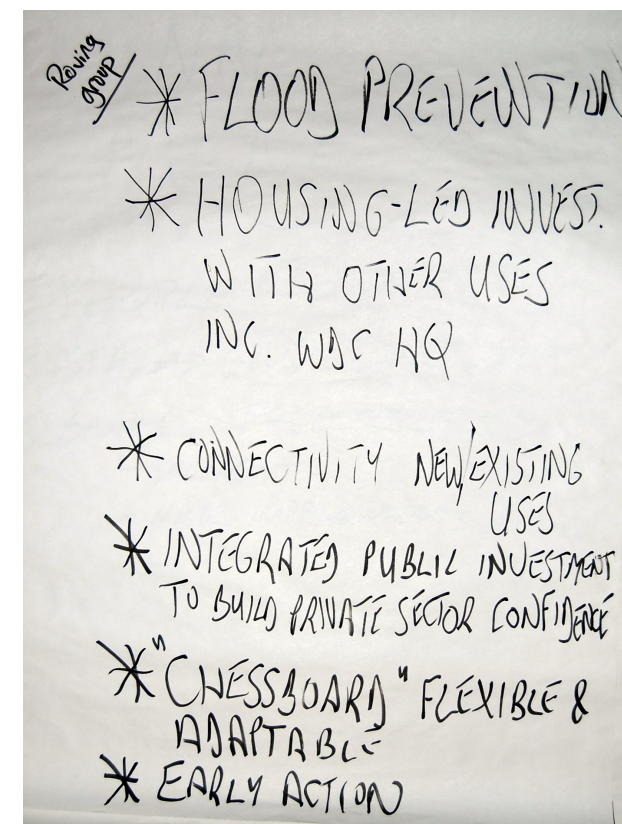 Roving
group
* FLOOD PREVENTION
* HOUSING-LED INVEST.
WITH OTHER USES
INC. WDC HQ
* CONNECTIVITY NEW/EXISTING
USES
* INTEGRATED PUBLIC INVESTMENT
TO BUILD PRIVATE SECTOR CONFIDENCE
* "CHESSBOARD" FLEXIBLE &
ADAPTABLE
* EARLY ACTION